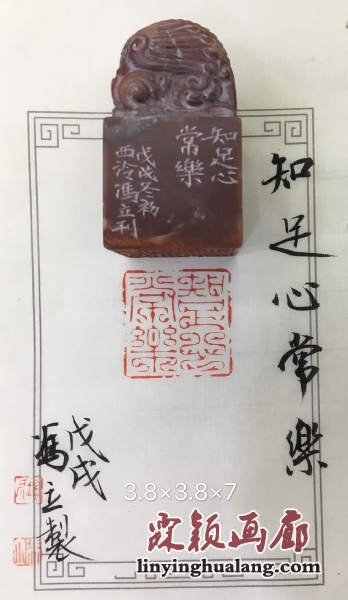 知足心
常樂
戊戌冬初
西泠馮立刊
知足心常樂
知足心常樂
戊戌
馮立製
3.8×3.8×7
霖颖画廊
linyinghualang.com